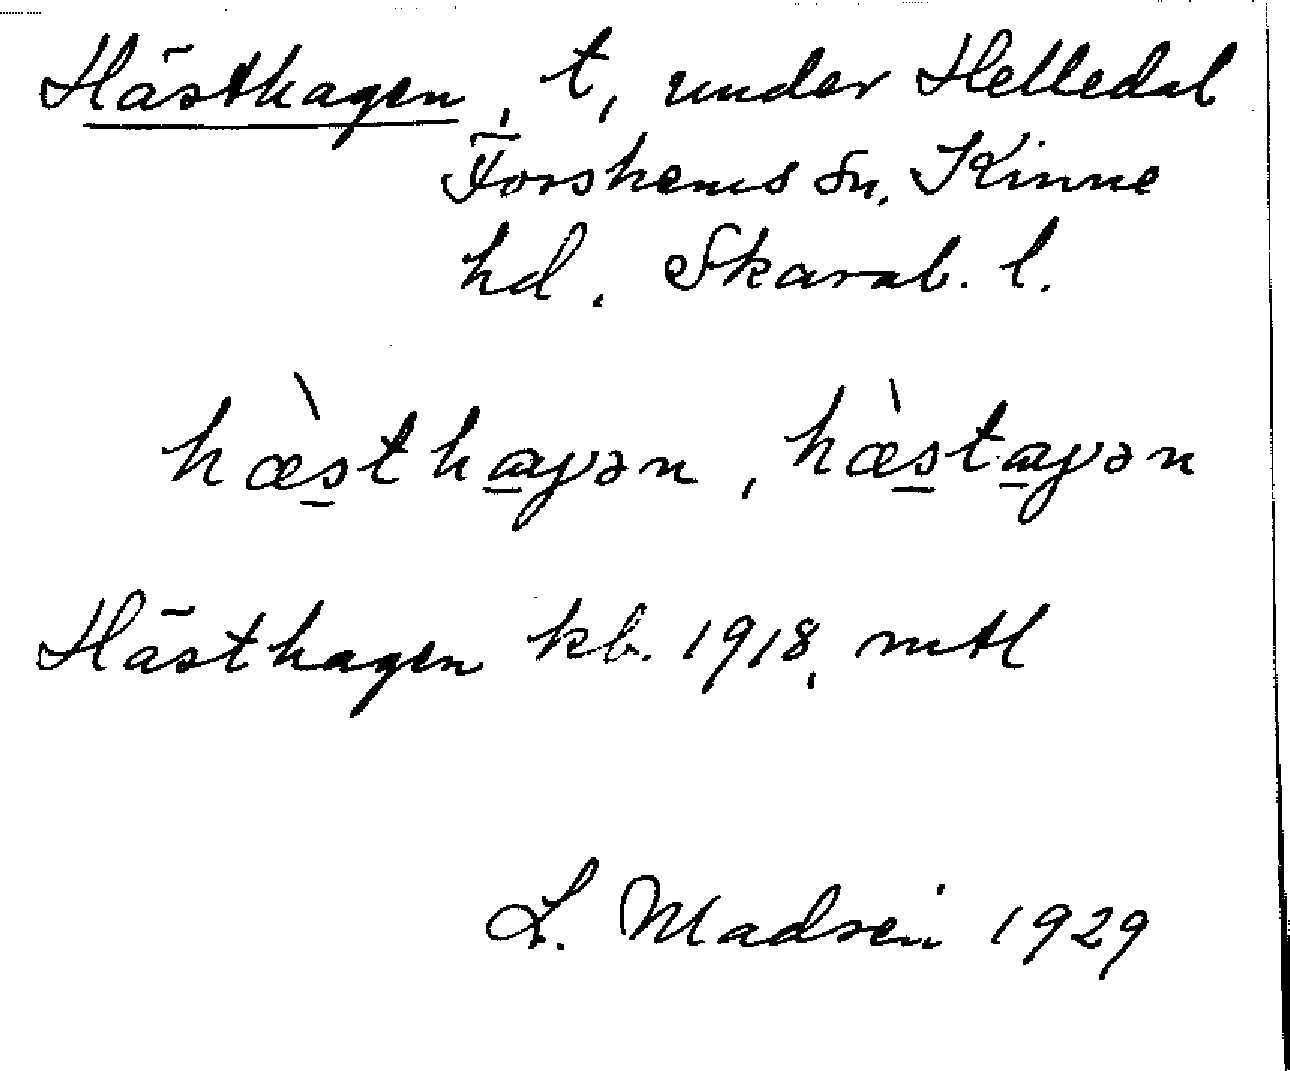 Hästhagen, t, under Helledal
Forshems sn, Kinne
hd. Skarab. l.
hæ̀sthaγən, hæ̀staγən
Hästhagen kb. 1918, mtl
L. Madsen 1929